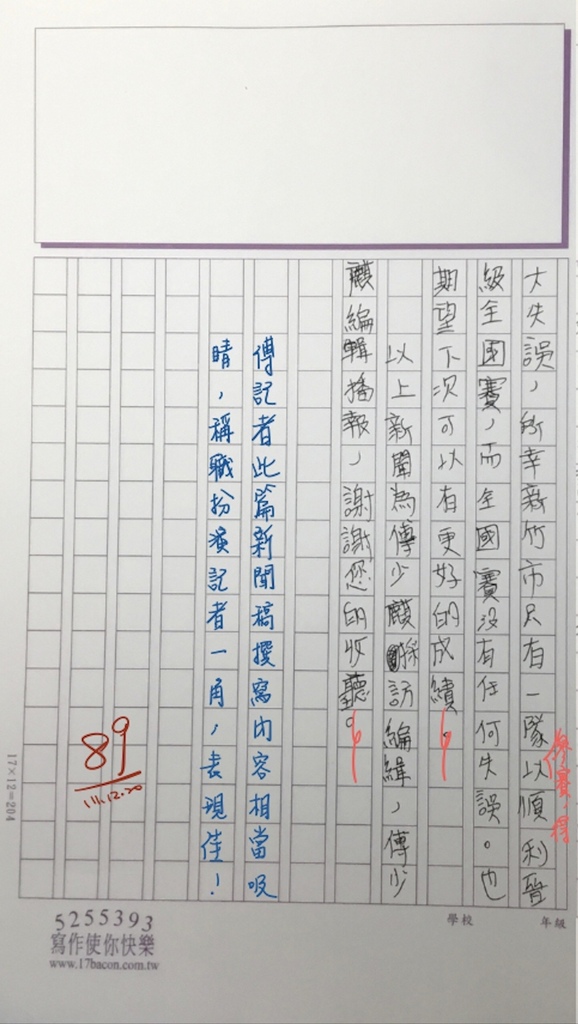 大失誤，所幸新竹市只有一隊以順利晉
參賽，得
級全國賽，而全國賽沒有任何失誤。也
期望下次可以有更好的成績。
以上新聞為傅少麒採訪編緝，傅少
麒編輯播報，謝謝您的收聽。
傅記者此篇新聞稿撰寫內容相當吸
睛，稱職扮演記者一角，表現佳！
89
111.12.20
17×12=204
5255393
寫作使你快樂
www.17bacon.com.tw
學校
年級